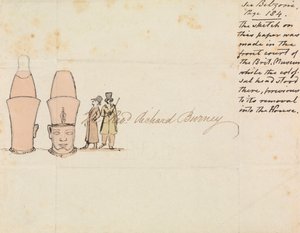 See Belzoni.
Page 184.
The sketch on
this paper was
made in the
front court of
the Brit. Museum
while the colos-
sal head stood
there, previous
to its removal
into the House.
Richard Burney